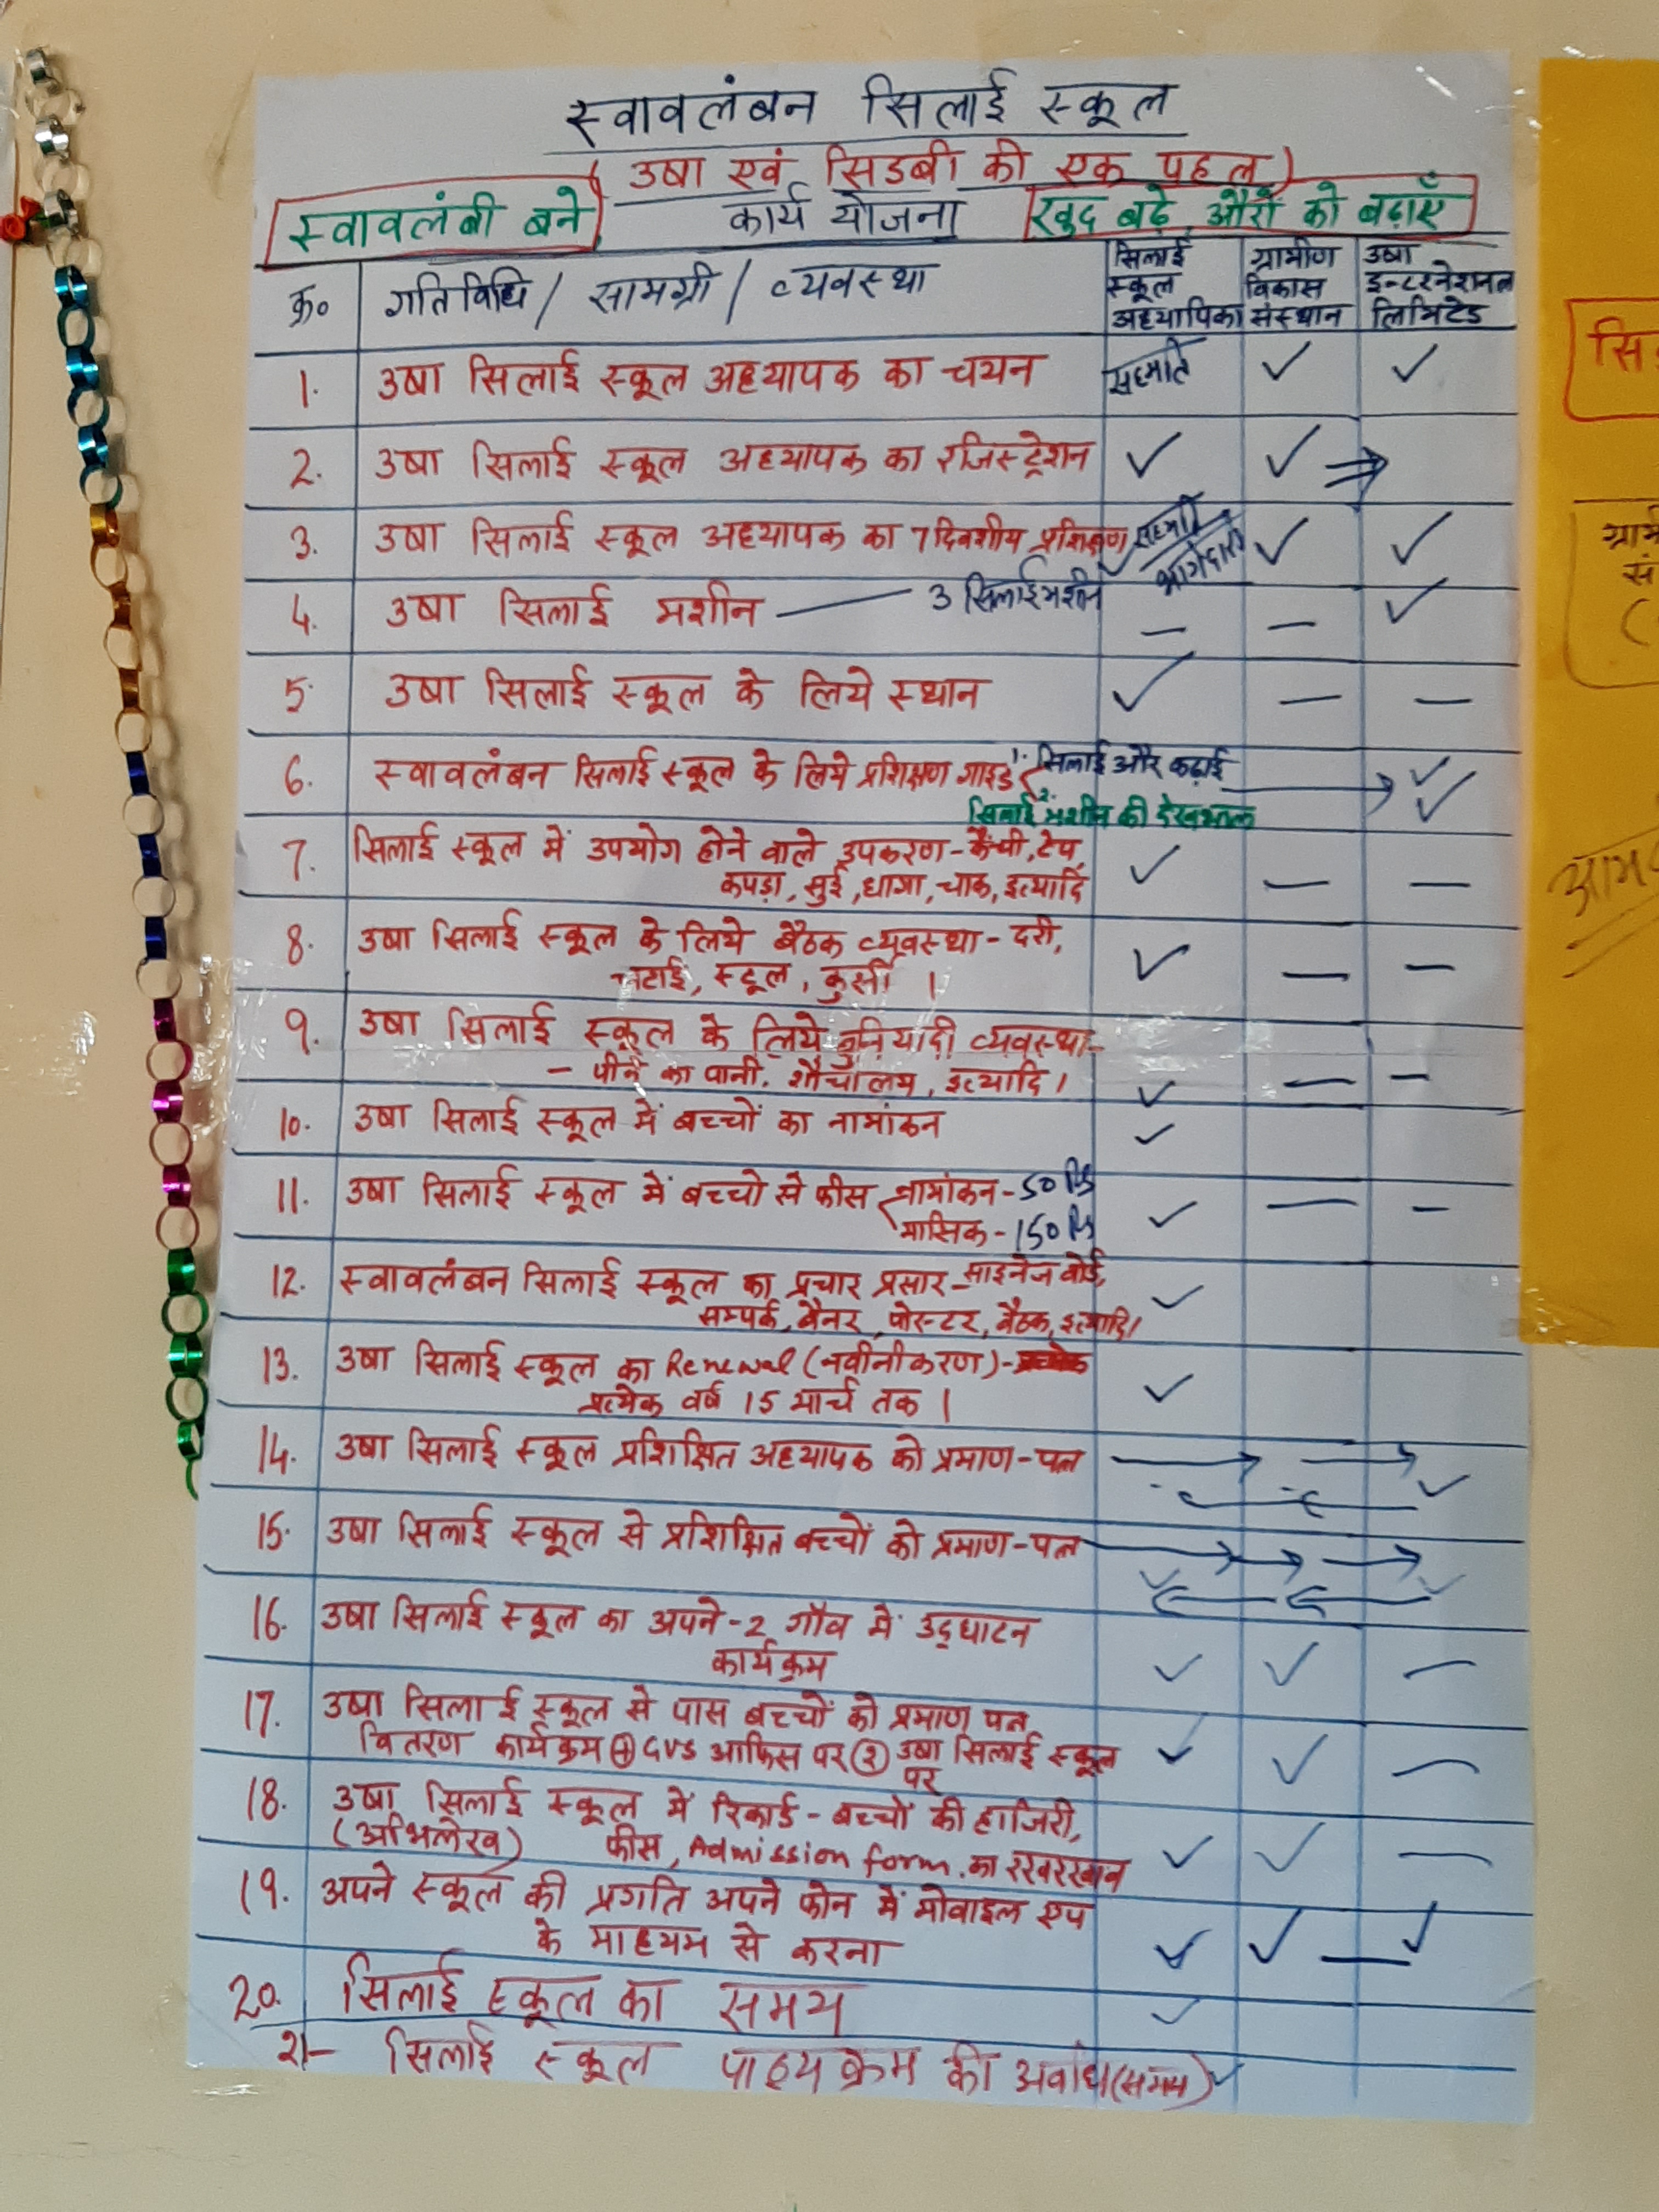 स्वावलंबन सिलाई स्कूल
( उषा एवं सिडबी की एक पहल )
स्वावलंबी बने कार्य योजना खुद बढ़े, औरों को बढ़ाएँ
क्र० गतिविधि / सामग्री / व्यवस्था सिलाई स्कूल अध्यापिका ग्रामीण विकास संस्थान उषा इन्टरनेशनल लिमिटेड
1. उषा सिलाई स्कूल अध्यापक का चयन सहमति ✓ ✓
2. उषा सिलाई स्कूल अध्यापक का रजिस्ट्रेशन ✓ ✓ ⇒
3. उषा सिलाई स्कूल अध्यापक का 7 दिवशीय प्रशिक्षण ✓ सहमति ✓ ✓
भागेदारी
4. उषा सिलाई मशीन — 3 सिलाई मशीन — — ✓
5. उषा सिलाई स्कूल के लिये स्थान ✓ — —
6. स्वावलंबन सिलाई स्कूल के लिये प्रशिक्षण गाइड 1. सिलाई और कढ़ाई → ✓
2. सिलाई मशीन की देखभाल ✓
7. सिलाई स्कूल में उपयोग होने वाले उपकरण - कैंची, टेप,
कपड़ा, सुई, धागा, चाक, इत्यादि ✓ — —
8. उषा सिलाई स्कूल के लिये बैठक व्यवस्था - दरी,
चटाई, स्टूल, कुर्सी । ✓ — —
9. उषा सिलाई स्कूल के लिये बुनियादी व्यवस्था-
- पीने का पानी, शौचालय, इत्यादि । ✓ — —
10. उषा सिलाई स्कूल में बच्चों का नामांकन ✓
11. उषा सिलाई स्कूल में बच्चो से फीस नामांकन - 50 Rs
मासिक - 150 Rs ✓ — —
12. स्वावलंबन सिलाई स्कूल का प्रचार प्रसार - साइनेज बोर्ड,
सम्पर्क, बैनर, पोस्टर, बैठक, इत्यादि । ✓
13. उषा सिलाई स्कूल का Renewal (नवीनीकरण) -
प्रत्येक वर्ष 15 मार्च तक । ✓
14. उषा सिलाई स्कूल प्रशिक्षित अध्यापक को प्रमाण-पत्र → → ✓
15. उषा सिलाई स्कूल से प्रशिक्षित बच्चों को प्रमाण-पत्र → → → ✓ ✓
16. उषा सिलाई स्कूल का अपने-2 गाँव में उद्घाटन
कार्यक्रम ✓ ✓ —
17. उषा सिलाई स्कूल से पास बच्चों को प्रमाण पत्र
वितरण कार्यक्रम ① GVS आफिस पर ② उषा सिलाई स्कूल
पर ✓ ✓ —
18. उषा सिलाई स्कूल में रिकार्ड - बच्चों की हाजिरी,
(अभिलेख) फीस, Admission form. का रखरखाव ✓ ✓ —
19. अपने स्कूल की प्रगति अपने फोन में मोबाइल एप
के माध्यम से करना ✓ ✓ — ✓
20. सिलाई स्कूल का समय ✓
21- सिलाई स्कूल पाठ्यक्रम की अवधि (समय) ✓
सि
ग्राम
सं